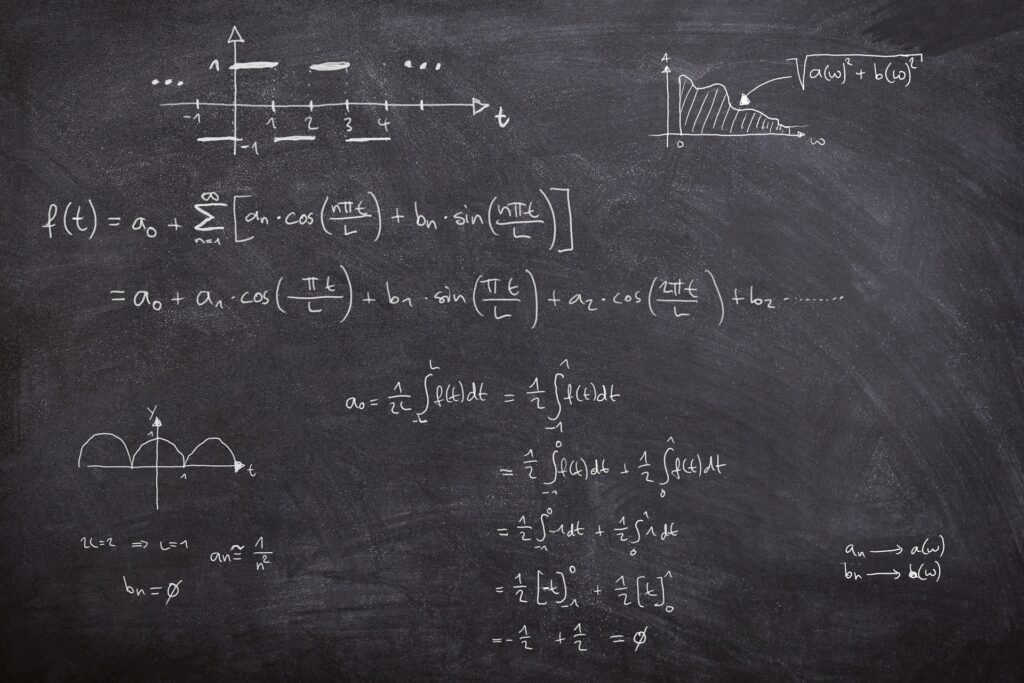 1
... ...
-1 1 2 3 4 t
-1
A
√(a(ω)² + b(ω)²)
0 ω
f(t) = a₀ + ∑ₙ₌₁^∞ [aₙ · cos(nπt/L) + bₙ · sin(nπt/L)]
= a₀ + a₁ · cos(πt/L) + b₁ · sin(πt/L) + a₂ · cos(2πt/L) + b₂ ........
a₀ = 1/2L ∫₋L^L f(t)dt = 1/2 ∫₋₁^1 f(t)dt
y
1
1 t
= 1/2 ∫₋₁^0 f(t)dt + 1/2 ∫₀^1 f(t)dt
= 1/2 ∫₋₁^0 -1dt + 1/2 ∫₀^1 1dt
2L=2 ⇒ L=1 aₙ ≅ 1/n²
bₙ = ∅
= 1/2 [-t]₋₁^0 + 1/2 [t]₀^1
= -1/2 + 1/2 = ∅
aₙ → a(ω)
bₙ → b(ω)